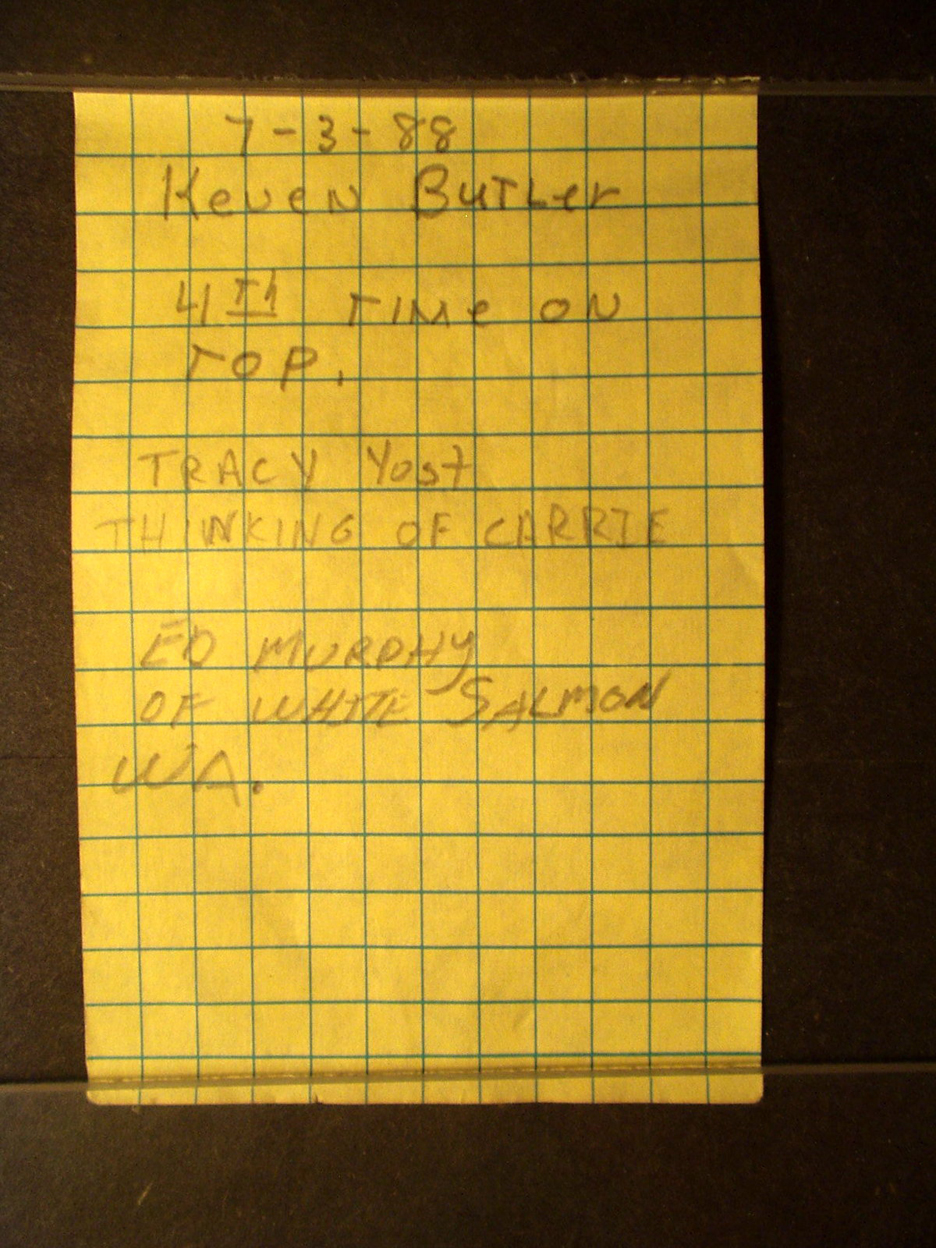 7-3-88
Keven Butler
4th TIME ON
TOP.
TRACY Yost
THINKING OF CARRIE
ED MURPHY
OF WHITE SALMON
WA.